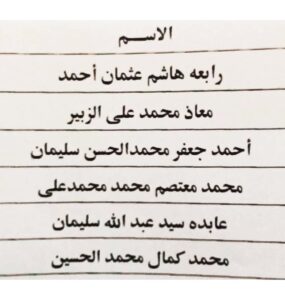 الاســم
رابعه هاشم عثمان أحمد
معاذ محمد على الزبير
أحمد جعفر محمدالحسن سليمان
محمد معتصم محمد محمدعلى
عابده سيد عبد الله سليمان
محمد كمال محمد الحسين